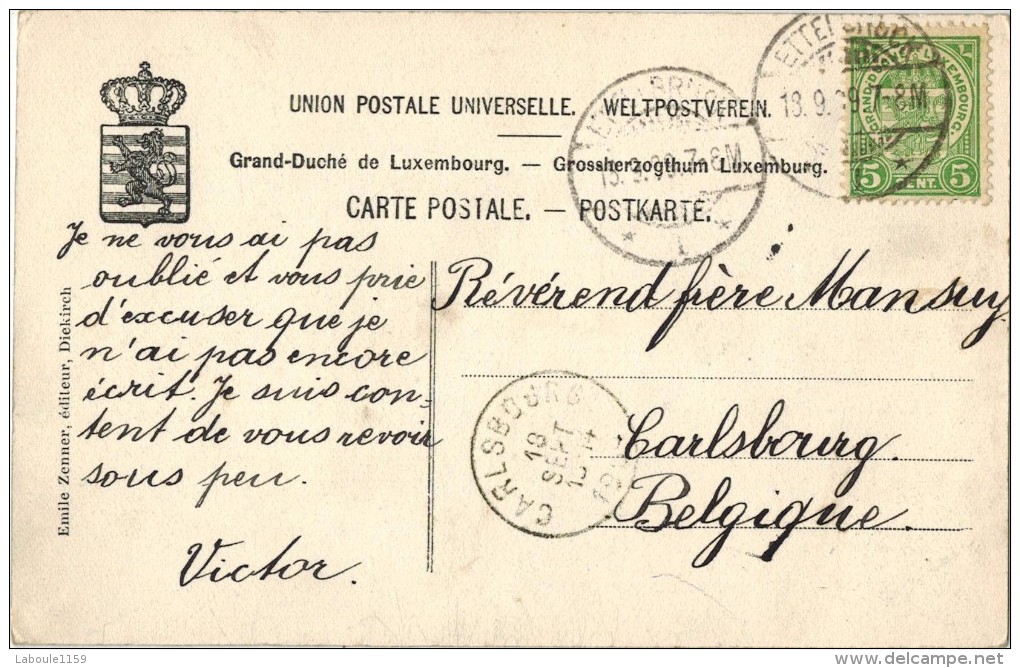 UNION POSTALE UNIVERSELLE. WELTPOSTVEREIN.
Grand-Duché de Luxembourg. — Grossherzogthum Luxemburg.
CARTE POSTALE. — POSTKARTE.
ETTELBRUCK
18.9.09.7-8M
GRAND DUCHÉ DE LUXEMBOURG.
5 CENT. 5
ETTELBRUCK
18.9.09.7-8M
1
Je ne vous ai pas
oublié et vous prie
d'excuser que je
n'ai pas encore
écrit. Je suis con-
tent de vous revoir
sous peu.
Victor.
Emile Zenner, éditeur, Diekirch
Révérend frère Mansuy
Carlsbourg.
Belgique.
CARLSBOURG
18
SEPT
Laboule1159
delcampe.net